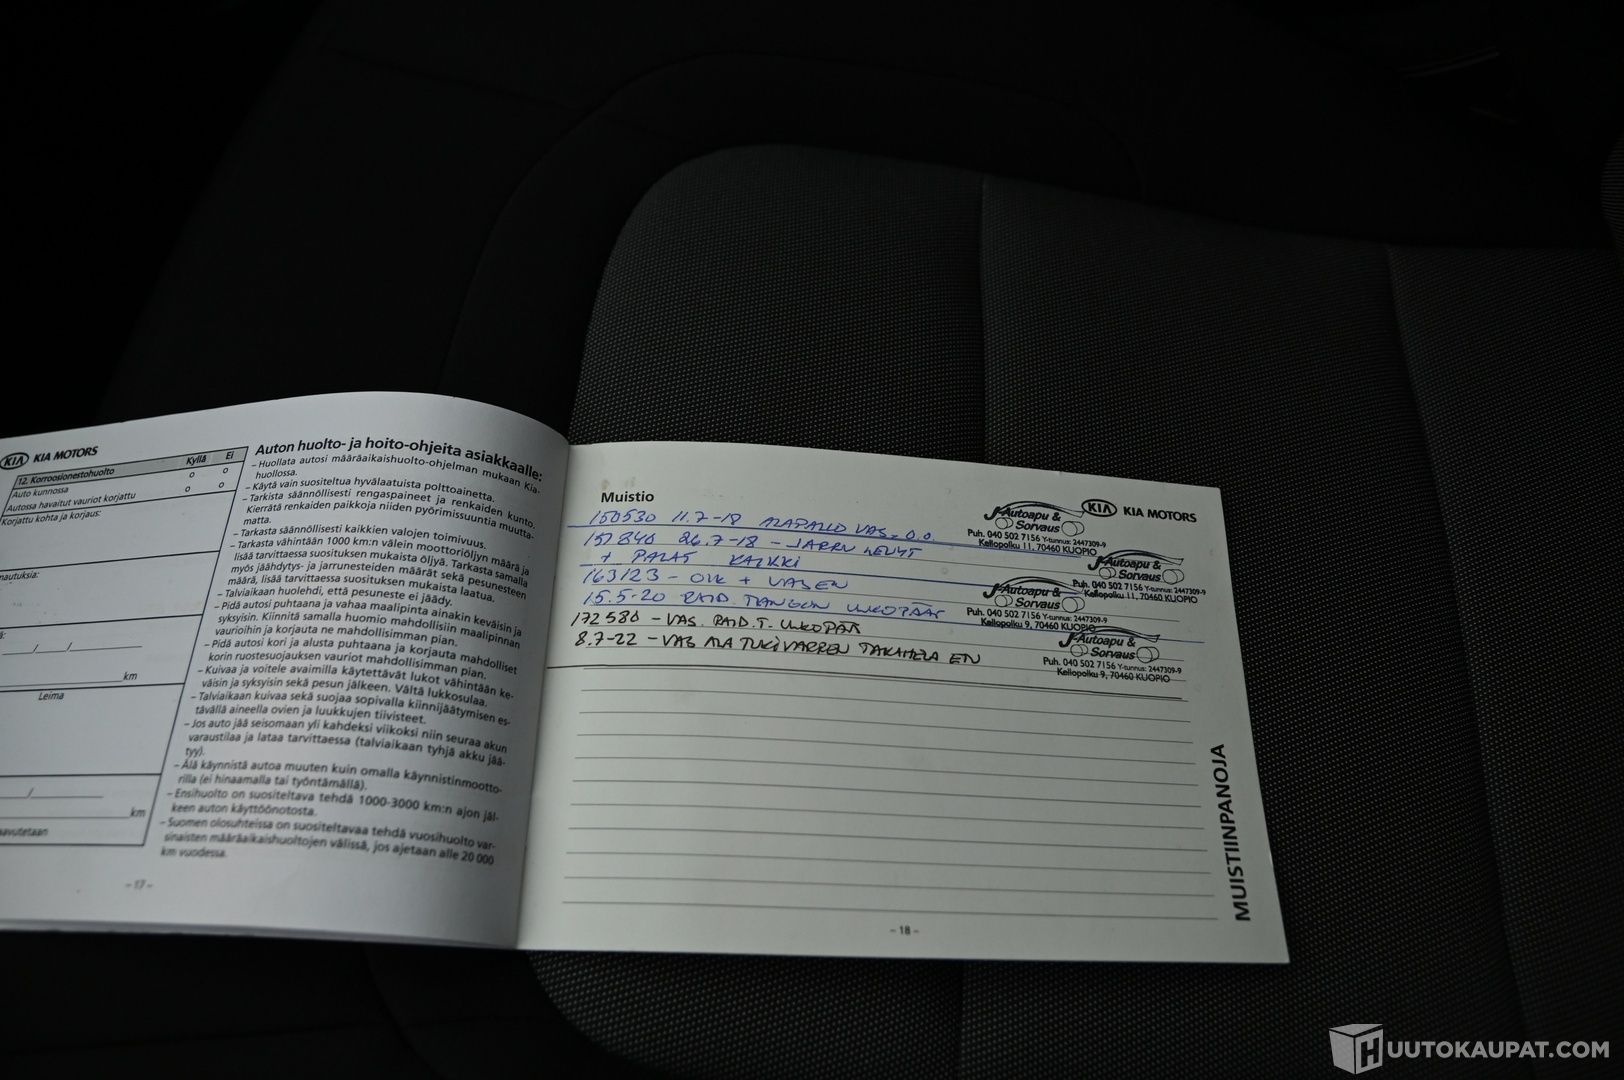 KIA KIA MOTORS
Kyllä Ei
12. Korroosionestohuolto
Auto kunnossa o o
Autossa havaitut vauriot korjattu o o
Korjattu kohta ja korjaus:
km
Leima
km
Auton huolto- ja hoito-ohjeita asiakkaalle:
– Huollata autosi määräaikaishuolto-ohjelman mukaan Kia-
huollossa.
– Käytä vain suositeltua hyvälaatuista polttoainetta.
– Tarkista säännöllisesti rengaspaineet ja renkaiden kunto.
Kierrätä renkaiden paikkoja niiden pyörimissuuntia muutta-
matta.
– Tarkasta säännöllisesti kaikkien valojen toimivuus.
– Tarkasta vähintään 1000 km:n välein moottoriöljyn määrä ja
lisää tarvittaessa suosituksen mukaista öljyä. Tarkasta samalla
myös jäähdytys- ja jarrunesteiden määrät sekä pesunesteen
määrä, lisää tarvittaessa suosituksen mukaista laatua.
– Talviaikaan huolehdi, että pesuneste ei jäädy.
– Pidä autosi puhtaana ja vahaa maalipinta ainakin keväisin ja
syksyisin. Kiinnitä samalla huomio mahdollisiin maalipinnan
vaurioihin ja korjauta ne mahdollisimman pian.
– Pidä autosi kori ja alusta puhtaana ja korjauta mahdolliset
korin ruostesuojauksen vauriot mahdollisimman pian.
– Kuivaa ja voitele avaimilla käytettävät lukot vähintään ke-
väisin ja syksyisin sekä pesun jälkeen. Vältä lukkosulaa.
– Talviaikaan kuivaa sekä suojaa sopivalla kiinnijäätymisen es-
tävällä aineella ovien ja luukkujen tiivisteet.
– Jos auto jää seisomaan yli kahdeksi viikoksi niin seuraa akun
varaustilaa ja lataa tarvittaessa (talviaikaan tyhjä akku jää-
tyy).
– Älä käynnistä autoa muuten kuin omalla käynnistinmootto-
rilla (ei hinaamalla tai työntämällä).
– Ensihuolto on suositeltava tehdä 1000-3000 km:n ajon jäl-
keen auton käyttöönotosta.
– Suomen olosuhteissa on suositeltavaa tehdä vuosihuolto var-
sinaisten määräaikaishuoltojen välissä, jos ajetaan alle 20 000
km vuodessa.
– 17 –
KIA KIA MOTORS
Muistio
150530 11.7-18 ALAPALLO VAS. O.O.
157840 26.7-18 – JARRU LEVYT
+ PALAT KAIKKI
163123 – OIK + VASEN
15.5-20 RAID. TANGON ULKOPÄÄT
172580 – VAS. RAID.T. ULKOPÄÄ
8.7-22 – VAS ALA TUKIVARREN TAKAHELA ETU
J-Autoapu &
Sorvaus
Puh. 040 502 7156 Y-tunnus: 2447309-9
Kellopolku 11, 70460 KUOPIO
J-Autoapu &
Sorvaus
Puh. 040 502 7156 Y-tunnus: 2447309-9
Kellopolku 11, 70460 KUOPIO
J-Autoapu &
Sorvaus
Puh. 040 502 7156 Y-tunnus: 2447309-9
Kellopolku 9, 70460 KUOPIO
J-Autoapu &
Sorvaus
Puh. 040 502 7156 Y-tunnus: 2447309-9
Kellopolku 9, 70460 KUOPIO
MUISTIINPANOJA
– 18 –
HUUTOKAUPAT.COM